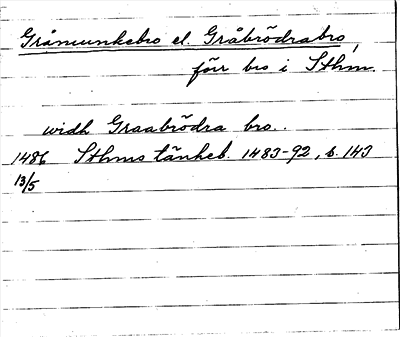 Gråmunkebro el. Gråbrödrabro,
förr bro i Sthm.
widh Graabrödra bro..
1486 Sthms tänkeb. 1483-92, s. 143
13/5